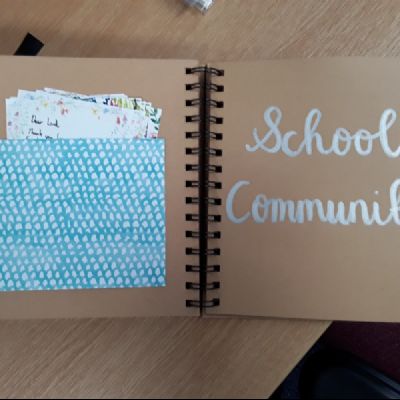 Dear Lord,
Thank you
School
Communit